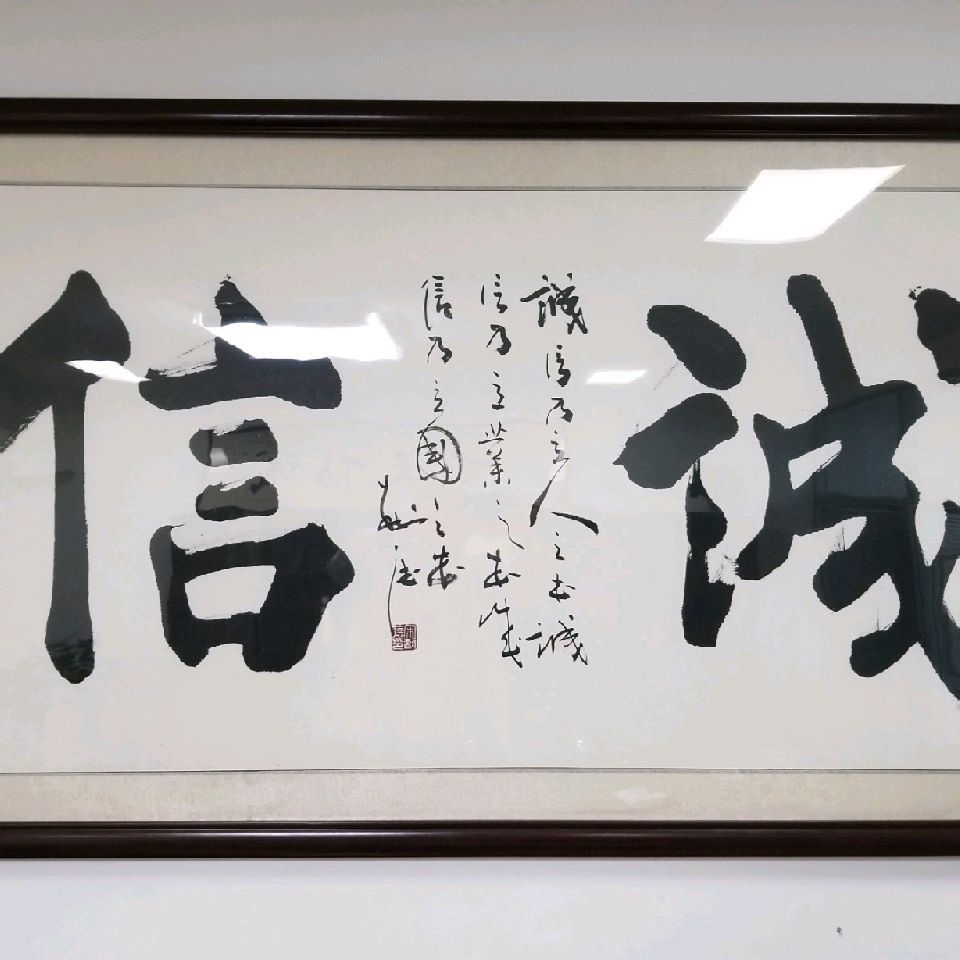 诚
誠信乃立人之本誠
信乃立業之本誠
信乃立國之本
信